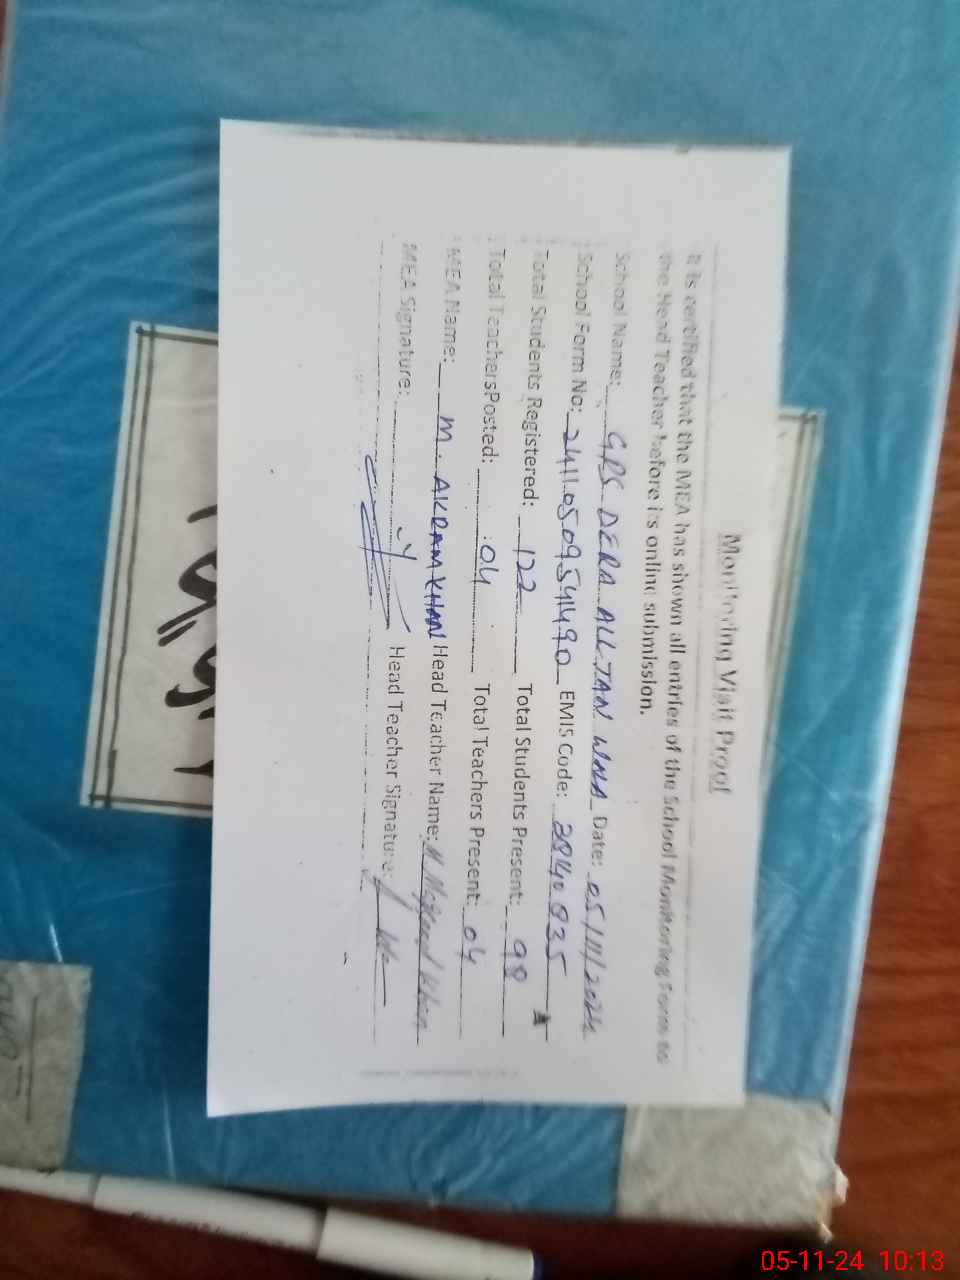 Monitoring Visit Proof
It is certified that the MEA has shown all entries of the School Monitoring Form to
the Head Teacher before its online submission.
School Name: GPS DERA ALI JAN WNA Date: 05/11/2024
School Form No: 24110509541490 EMIS Code: 3840035
Total Students Registered: 122 Total Students Present: 98
Total Teachers Posted: 04 Total Teachers Present: 04
MEA Name: M. AKRAM KHAN Head Teacher Name: M. Khan
MEA Signature: Head Teacher Signature:
05-11-24 10:13